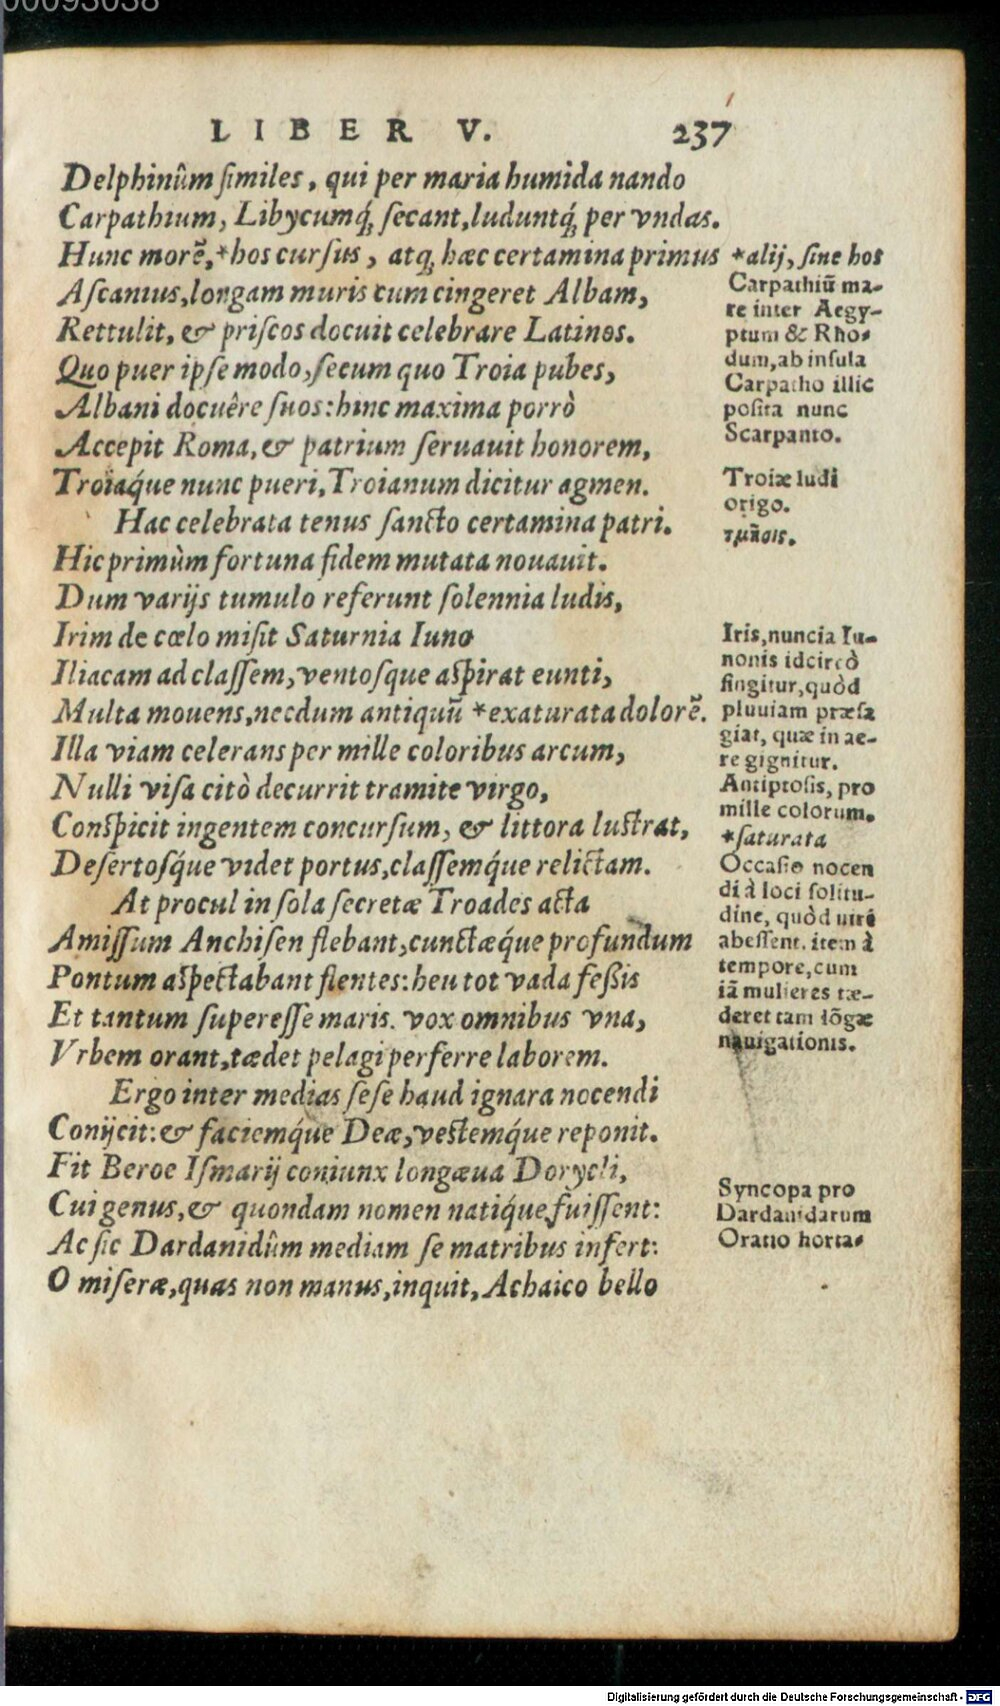 00093038
LIBER V. 237
Delphinûm ſimiles, qui per maria humida nando
Carpathium, Libycumq́; ſecant, luduntq́; per vndas.
Hunc morẽ, *hos curſus, atq; hæc certamina primus
Aſcanius, longam muris cum cingeret Albam,
Rettulit, & priſcos docuit celebrare Latinos.
Quo puer ipſe modo, ſecum quo Troia pubes,
Albani docuêre ſuos: hinc maxima porrò
Accepit Roma, & patrium ſeruauit honorem,
Troiaq́ue nunc pueri, Troianum dicitur agmen.
Hac celebrata tenus ſancto certamina patri.
Hic primùm fortuna fidem mutata nouauit.
Dum varijs tumulo referunt ſolennia ludis,
Irim de cœlo miſit Saturnia Iuno
Iliacam ad claſſem, ventoſque aſpirat eunti,
Multa mouens, necdum antiquũ *exaturata dolorẽ.
Illa viam celerans per mille coloribus arcum,
Nulli viſa citò decurrit tramite virgo,
Conſpicit ingentem concurſum, & littora luſtrat,
Deſertoſq́ue videt portus, claſſemq́ue relictam.
At procul in ſola ſecretæ Troades acta
Amiſſum Anchiſen flebant, cunctæq́ue profundum
Pontum aſpectabant flentes: heu tot vada feßis
Et tantum ſupereſſe maris. vox omnibus vna,
Vrbem orant, tædet pelagi perferre laborem.
Ergo inter medias ſeſe haud ignara nocendi
Conijcit: & faciemq́ue Deæ, veſtemq́ue reponit.
Fit Beroe Iſmarij coniunx longæua Dorycli,
Cui genus, & quondam nomen natiq́ue fuiſſent:
Ac ſic Dardanidûm mediam ſe matribus infert:
O miſeræ, quas non manus, inquit, Achaico bello
*alij, ſine hos
Carpathiũ ma-
re inter Aegy-
ptum & Rho-
dum, ab inſula
Carpatho illic
poſita nunc
Scarpanto.
Troiæ ludi
origo.
τμῆσις.
Iris, nuncia Iu-
nonis idcircò
fingitur, quòd
pluuiam præſa
giat, quæ in ae-
re gignitur.
Antiptoſis, pro
mille colorum.
*ſaturata
Occaſio nocen
di à loci ſolitu-
dine, quòd uiri
abeſſent. item à
tempore, cum
iã mulieres tæ-
deret tam lõgæ
nauigationis.
Syncopa pro
Dardanidarum
Oratio horta-
Digitalisierung gefördert durch die Deutsche Forschungsgemeinschaft - DFG